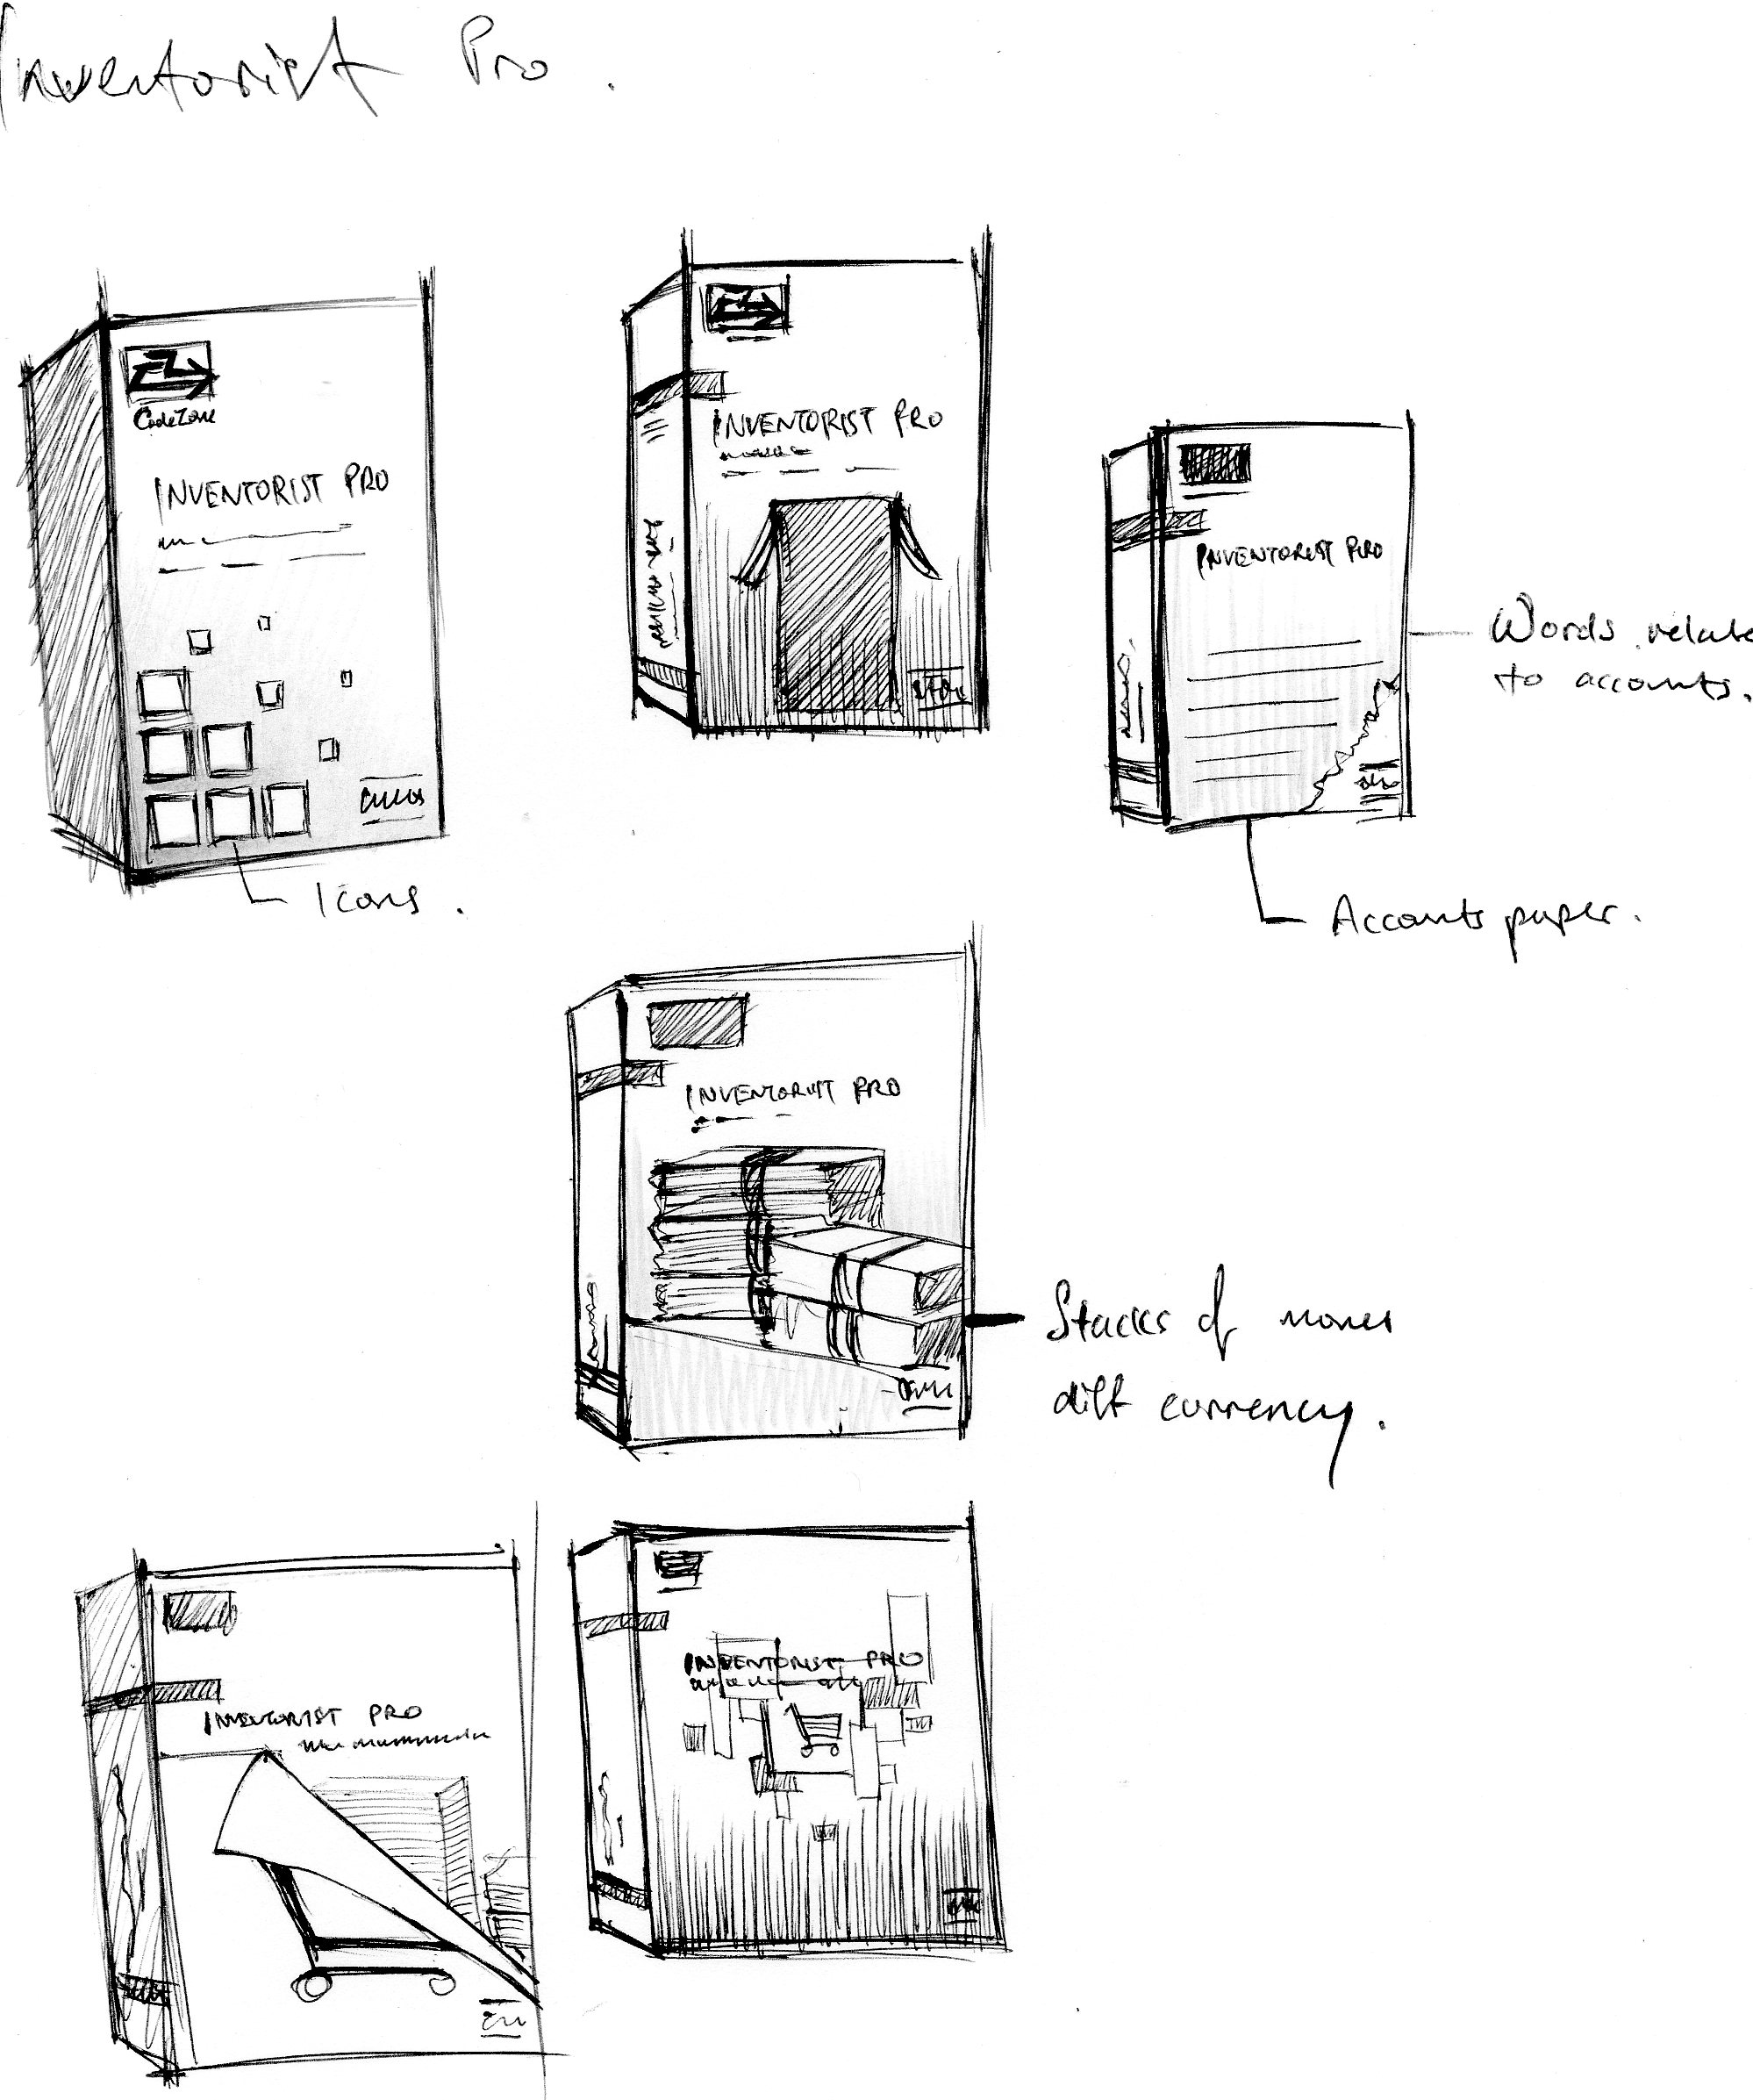 Inventorist Pro.
CodeZone
INVENTORIST PRO
Icons.
INVENTORIST PRO
INVENTORIST PRO
Words relate
to accounts.
Accounts paper.
INVENTORIST PRO
Stacks of money
diff currency.
INVENTORIST PRO
INVENTORIST PRO